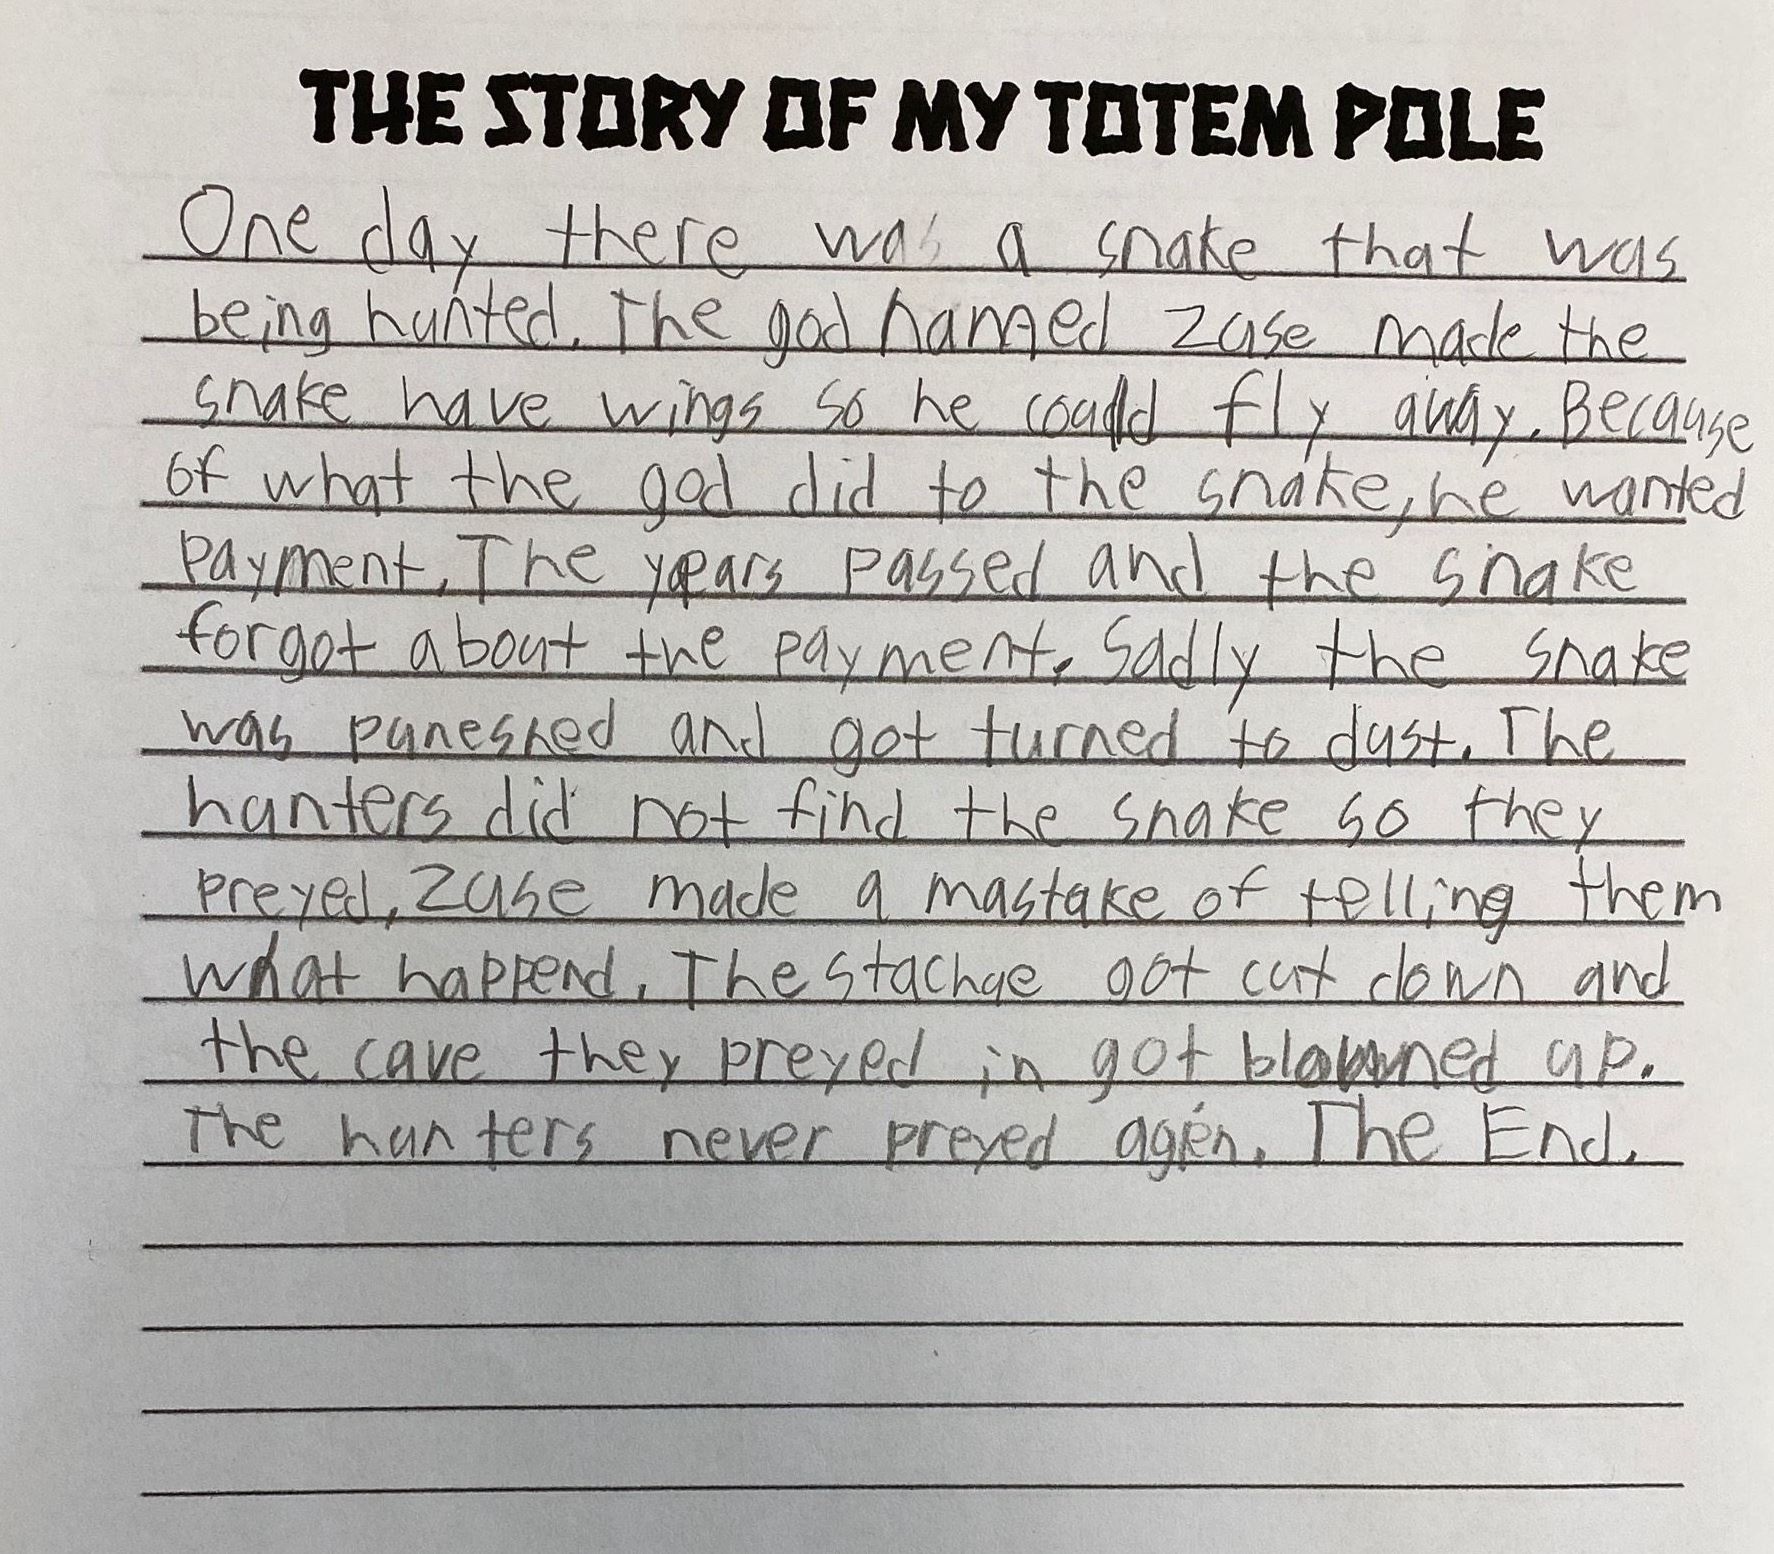 THE STORY OF MY TOTEM POLE
One day there was a snake that was
being hunted. The god named Zuse made the
snake have wings so he could fly away. Because
of what the god did to the snake, he wanted
payment. The years passed and the snake
forgot about the payment. Sadly the snake
was puneshed and got turned to dust. The
hunters did not find the snake so they
preyed. Zuse made a mastake of telling them
what happend. The stachue got cut down and
the cave they preyed in got blowned up.
The hunters never preyed agien. The End.